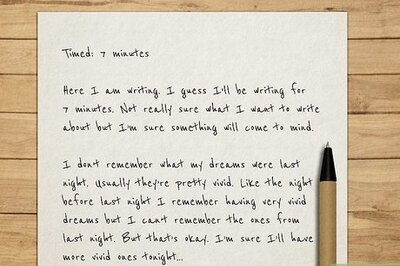 Timed: 7 minutes
Here I am writing. I guess I'll be writing for
7 minutes. Not really sure what I want to write
about but I'm sure something will come to mind.
I don't remember what my dreams were last
night. Usually they're pretty vivid. Like the night
before last night I remember having very vivid
dreams but I can't remember the ones from
last night. But that's okay. I'm sure I'll have
more vivid ones tonight...